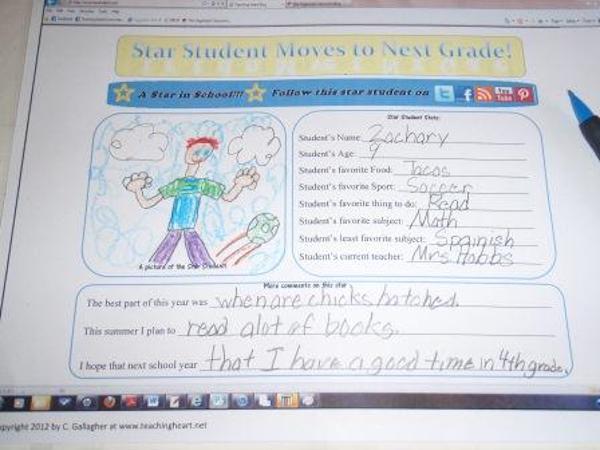 Star Student Moves to Next Grade!
A Star in School!!! Follow this star student on
You Tube
Star Student Stats:
Student's Name: Zachary
Student's Age: 9
Student's favorite Food: Tacos
Student's favorite Sport: Soccer
Student's favorite thing to do: Read
Student's favorite subject: Math
Student's least favorite subject: Spainish
Student's current teacher: Mrs. Hobbs
A picture of the Star Student
More comments on this star
The best part of this year was when are chicks hatched.
This summer I plan to read alot of books.
I hope that next school year that I have a good time in 4th grade.
opyright 2012 by C. Gallagher at www.teachingheart.net